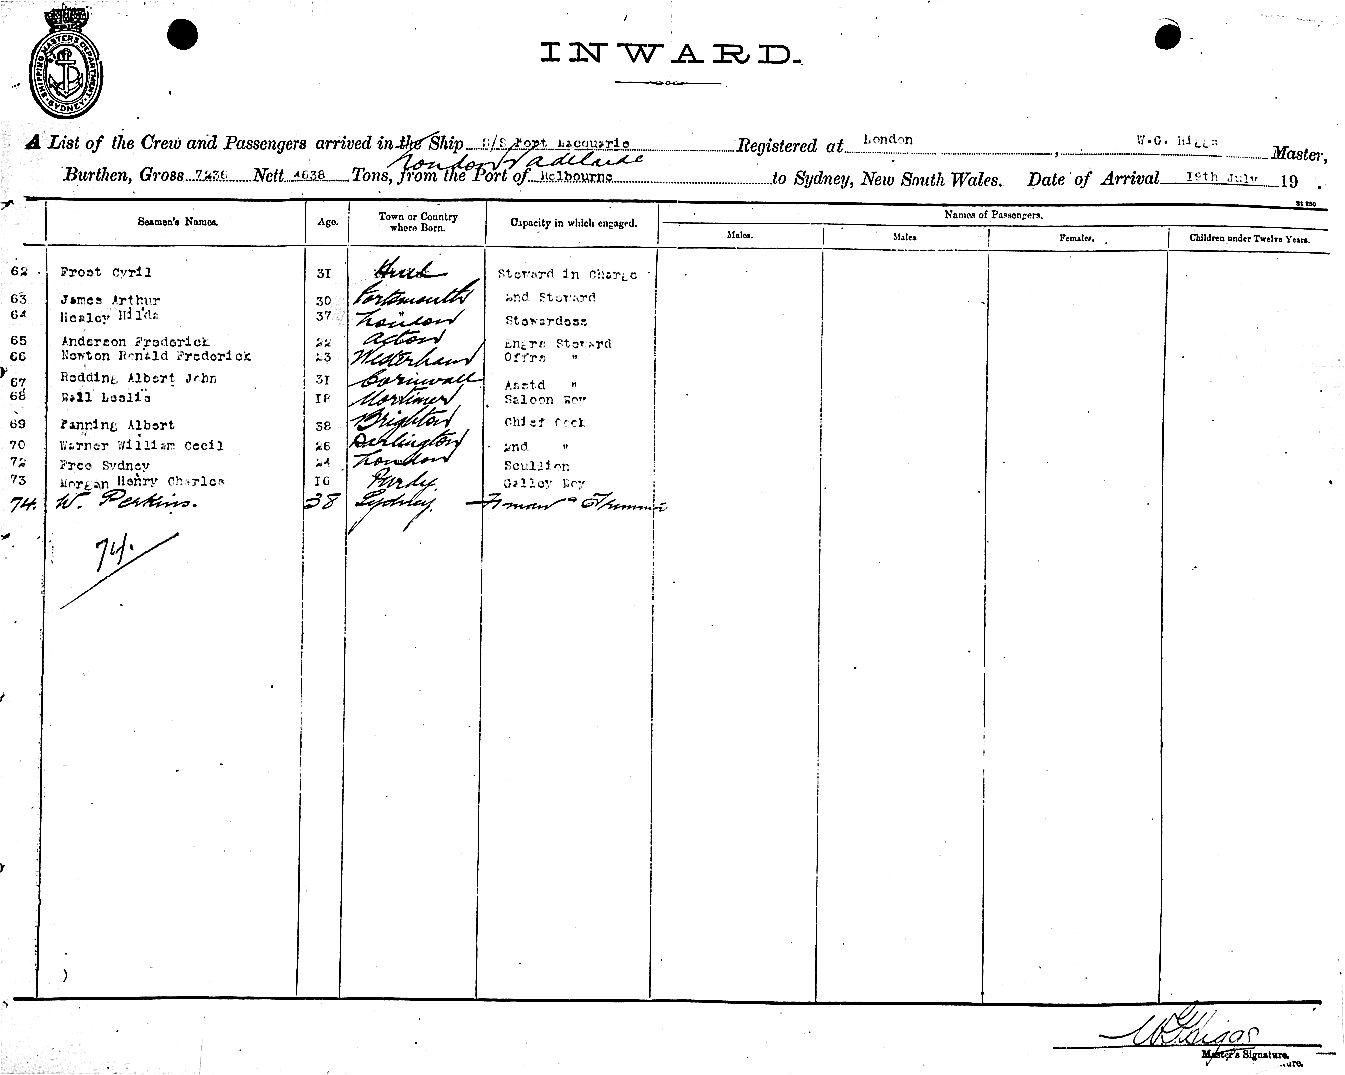 SHIPPING MASTERS DEPARTMENT SYDNEY
INWARD.
A List of the Crew and Passengers arrived in the Ship S/S Port Macquarie Registered at London, W.G. Higgs Master,
London & Adelaide
Burthen, Gross 7236 Nett 4638 Tons, from the Port of Melbourne to Sydney, New South Wales. Date of Arrival 19th July 19 .
Seamen's Names. Age. Town or Country where Born. Capacity in which engaged. Names of Passengers.
Males. Males Females. Children under Twelve Years.
62 Frost Cyril 31 Hull Steward in Charge
63 James Arthur 30 Portsmouth 2nd Steward
64 Healey Hilda 37 London Stewardess
65 Anderson Frederick 22 Acton Engrs Steward
66 Newton Ronald Frederick 23 Westerham Offrs "
67 Redding Albert John 31 Cornwall Asstd "
68 Leslie 18 Mortimer Saloon Boy
69 Fanning Albert 38 Brighton Chief Cook
70 Warner William Cecil 26 Darlington 2nd "
72 Free Sydney 24 London Scullion
73 Morgan Henry Charles 16 Galley Boy
74. W. Perkins. 38 Sydney. Fireman & Trimmer
74.
W G Higgs
Master's Signature.